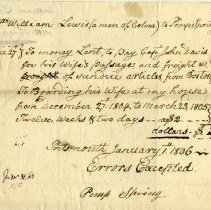 William Lewis (a man of Colour) to Pompe Spring
27 To money Lent, to pay Capt John Davis
for his Wife's Passage and Freight
of sundree articles, from Boston
To Boarding his Wife at my house
from December 27. 1804 to March 23. 1805
Twelve weeks & two days
dollars
Portsmouth January 1. 1806
Errors Excepted
Pomp Spring